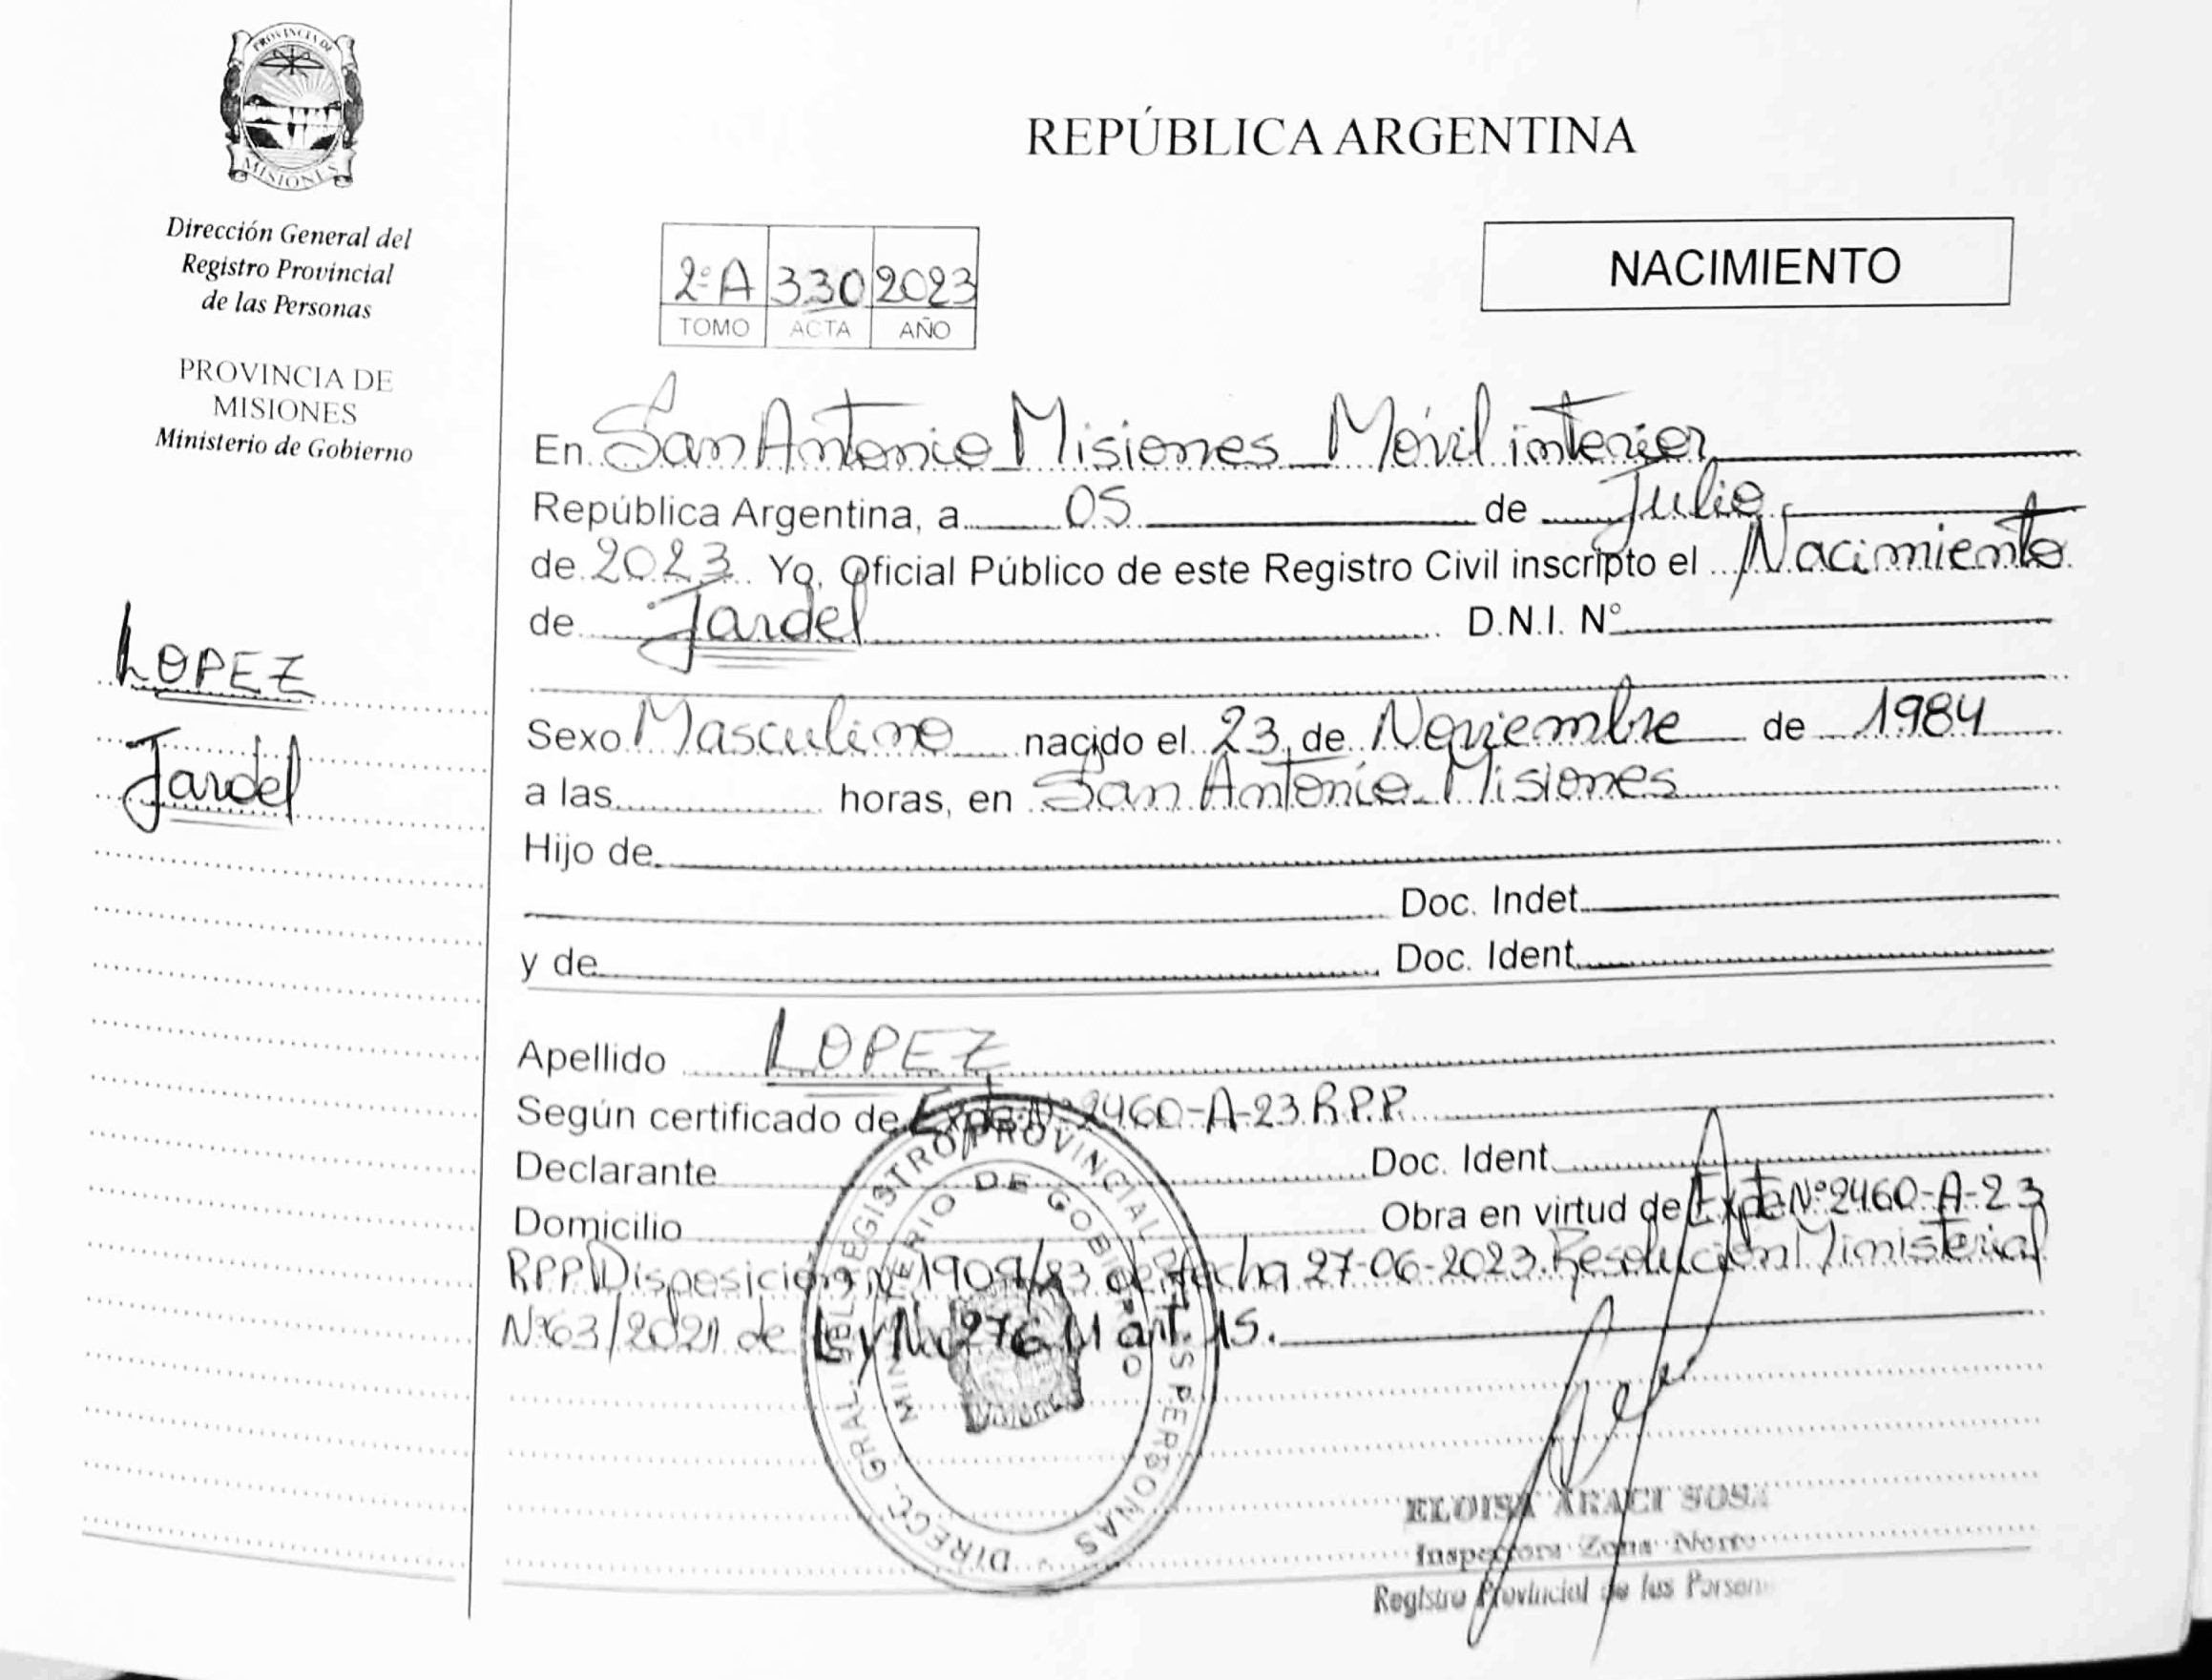 PROVINCIA DE
MISIONES
Dirección General del
Registro Provincial
de las Personas
PROVINCIA DE
MISIONES
Ministerio de Gobierno
LOPEZ
Jardel
REPÚBLICA ARGENTINA
2º A 330 2023
TOMO ACTA AÑO
NACIMIENTO
En San Antonio Misiones Móvil interior
República Argentina, a 05 de Julio
de 2023 Yo, Oficial Público de este Registro Civil inscripto el Nacimiento
de Jardel D.N.I. Nº
Sexo Masculino nacido el 23 de Noviembre de 1984
a las horas, en San Antonio Misiones
Hijo de
Doc. Indet.
y de Doc. Ident.
Apellido LOPEZ
Según certificado de Expte Nº 2460-A-23 R.P.P.
Declarante Doc. Ident.
Domicilio Obra en virtud de Expte Nº 2460-A-23
RPP Disposición Nº 1909/23 de fecha 27-06-2023. Resolución Ministerial
Nº 63/2021 de Ley Nº art. 15.
DIRECC. GRAL. DEL REGISTRO PROVINCIAL DE LAS PERSONAS
MINISTERIO DE GOBIERNO
Misiones
ELOISA ARACI SOSA
Inspectora Zona Norte
Registro Provincial de las Person